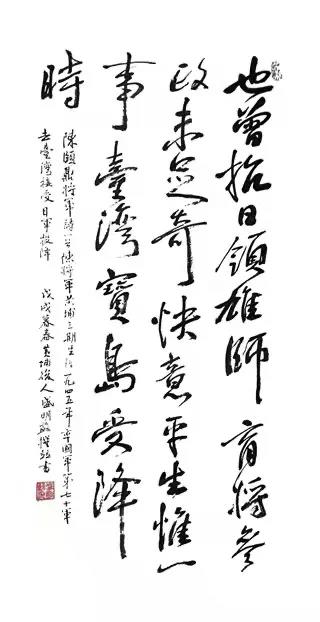 也曾抗日領雄師育將參
政未足奇快意平生惟一
事臺灣寶島受降
時
陳頤鼎將軍詩一首陳將軍黃埔三期生於一九四五年率國軍第七十軍
去臺灣接受日軍投降 戊戌暮春黃埔後人盛明書